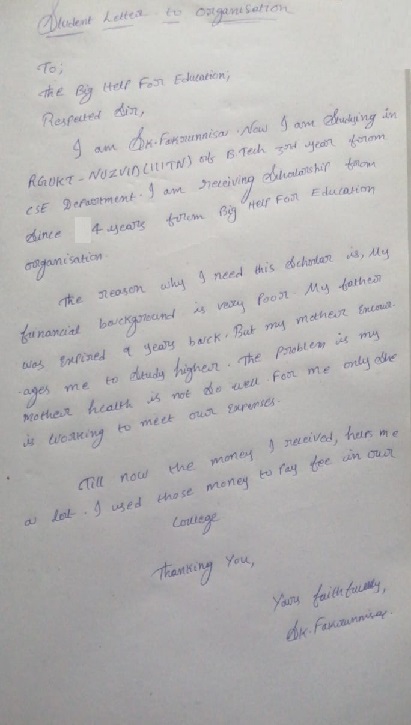 Student Letter to organisation
To;
The Big Help For Education,
Respected Sir,
I am Sk. Fakrunnisa. Now I am studying in
RGUKT - NUZVID (IIITN) of B.Tech 3rd year from
CSE Department. I am receiving scholarship from
since 4 years from Big Help For Education
organisation.
The reason why I need this scholar is, My
financial background is very Poor. My father
was Expired 9 years back. But my mother Encour
-ages me to study higher. The Problem is my
mother health is not so well. For me only she
is working to meet our Expenses.
Till now the money I received, help me
a lot. I used those money to Pay fee in our
College
Thanking You,
Yours faithfully,
Sk. Fakrunnisa.